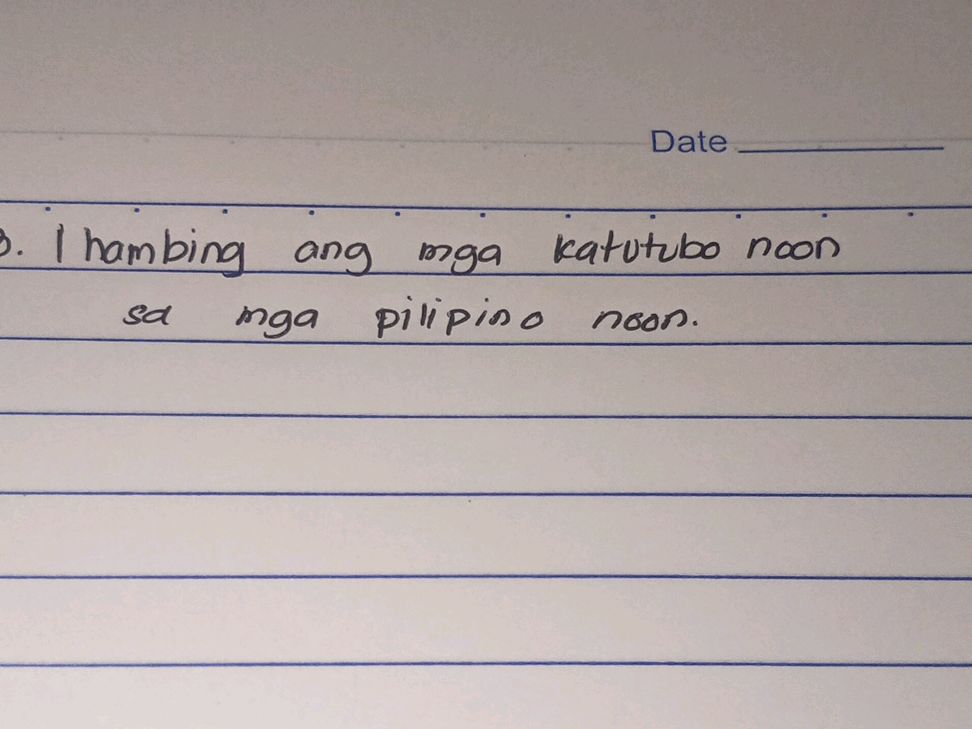 Date
3. Ihambing ang mga katutubo noon
sa mga pilipino noon.